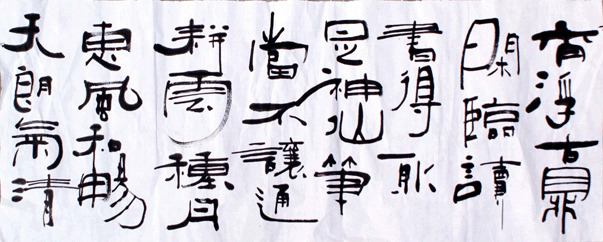 浮古鼎
閑臨讀
書得
是神仙筆
當不讓通
耕雲種月
惠風和暢
天朗氣清